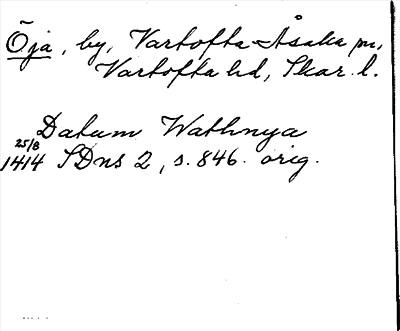 Õja, by, Vartofta-Åsaka sn,
Vartofta hd, Skar. l.
Datum Wathnya
25/8
1414 SDns 2, s. 846. orig.